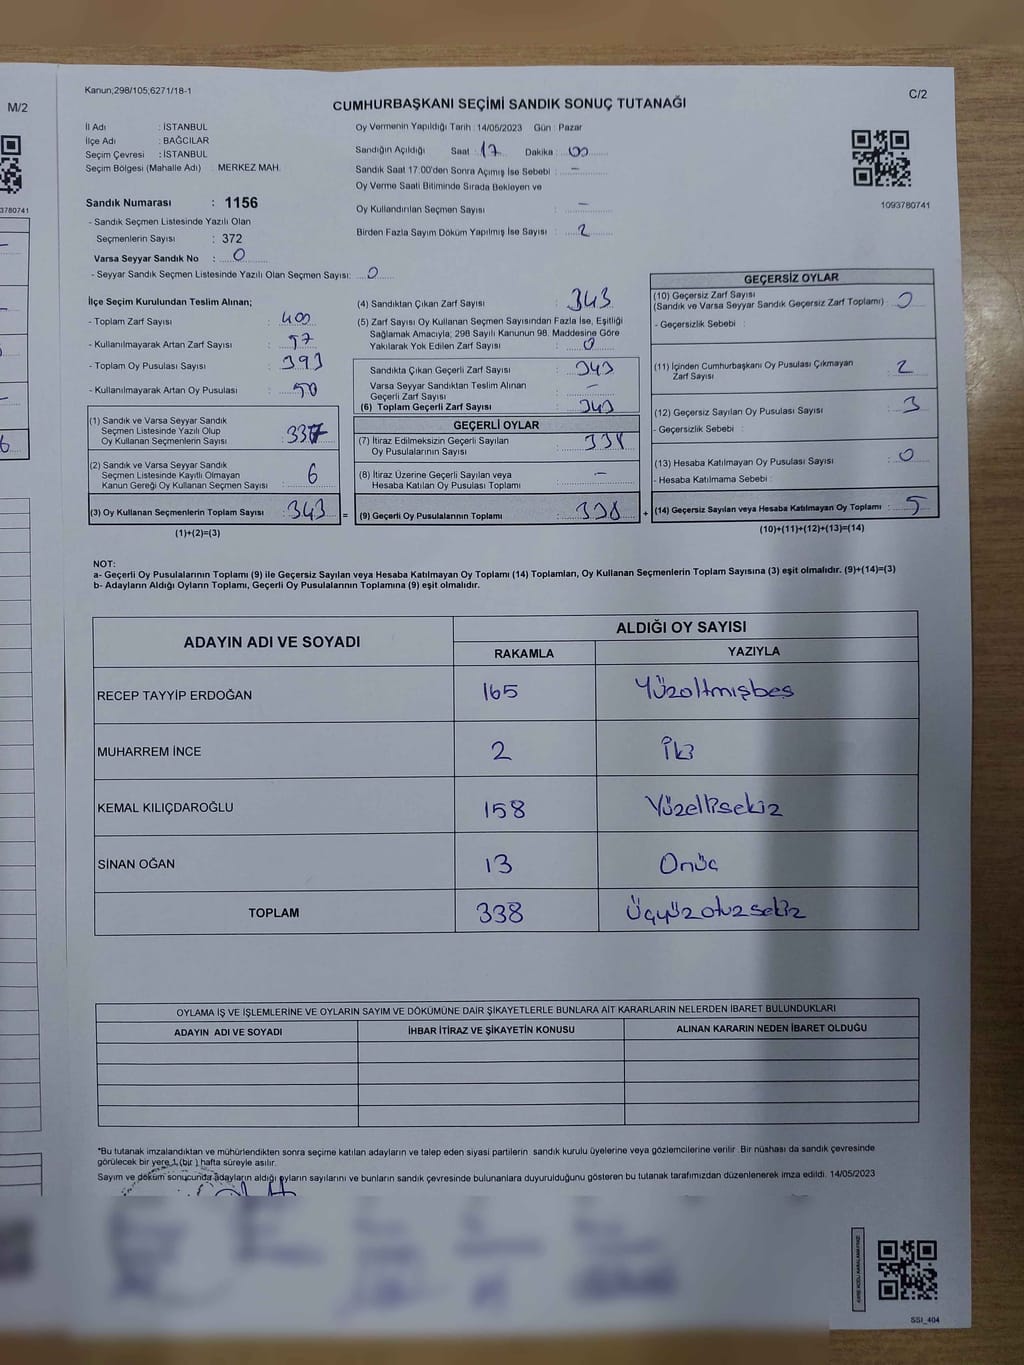 M/2
3780741
Kanun;298/105;6271/18-1
C/2
CUMHURBAŞKANI SEÇİMİ SANDIK SONUÇ TUTANAĞI
İl Adı : İSTANBUL
İlçe Adı : BAĞCILAR
Seçim Çevresi : İSTANBUL
Seçim Bölgesi (Mahalle Adı) : MERKEZ MAH.
Sandık Numarası : 1156
- Sandık Seçmen Listesinde Yazılı Olan
Seçmenlerin Sayısı : 372
Varsa Seyyar Sandık No : 0
- Seyyar Sandık Seçmen Listesinde Yazılı Olan Seçmen Sayısı: 0
Oy Vermenin Yapıldığı Tarih : 14/05/2023 Gün : Pazar
Sandığın Açıldığı Saat : 17 Dakika : 00
Sandık Saat 17:00'den Sonra Açımış İse Sebebi : -
Oy Verme Saati Bitiminde Sırada Bekleyen ve
Oy Kullandırılan Seçmen Sayısı : -
Birden Fazla Sayım Döküm Yapılmış İse Sayısı : 2
1093780741
İlçe Seçim Kurulundan Teslim Alınan;
- Toplam Zarf Sayısı : 400
- Kullanılmayarak Artan Zarf Sayısı : 57
- Toplam Oy Pusulası Sayısı : 393
- Kullanılmayarak Artan Oy Pusulası : 50
(1) Sandık ve Varsa Seyyar Sandık
Seçmen Listesinde Yazılı Olup
Oy Kullanan Seçmenlerin Sayısı : 337
(2) Sandık ve Varsa Seyyar Sandık
Seçmen Listesinde Kayıtlı Olmayan
Kanun Gereği Oy Kullanan Seçmen Sayısı : 6
(3) Oy Kullanan Seçmenlerin Toplam Sayısı : 343 =
(1)+(2)=(3)
(4) Sandıktan Çıkan Zarf Sayısı : 343
(5) Zarf Sayısı Oy Kullanan Seçmen Sayısından Fazla İse, Eşitliği
Sağlamak Amacıyla; 298 Sayılı Kanunun 98. Maddesine Göre
Yakılarak Yok Edilen Zarf Sayısı : 0
Sandıkta Çıkan Geçerli Zarf Sayısı : 343
Varsa Seyyar Sandıktan Teslim Alınan
Geçerli Zarf Sayısı : -
(6) Toplam Geçerli Zarf Sayısı : 343
GEÇERLİ OYLAR
(7) İtiraz Edilmeksizin Geçerli Sayılan
Oy Pusulalarının Sayısı : 338
(8) İtiraz Üzerine Geçerli Sayılan veya
Hesaba Katılan Oy Pusulası Toplamı : -
(9) Geçerli Oy Pusulalarının Toplamı : 338 +
GEÇERSİZ OYLAR
(10) Geçersiz Zarf Sayısı
(Sandık ve Varsa Seyyar Sandık Geçersiz Zarf Toplamı) : 0
- Geçersizlik Sebebi :
(11) İçinden Cumhurbaşkanı Oy Pusulası Çıkmayan
Zarf Sayısı : 2
(12) Geçersiz Sayılan Oy Pusulası Sayısı : 3
- Geçersizlik Sebebi :
(13) Hesaba Katılmayan Oy Pusulası Sayısı : 0
- Hesaba Katılmama Sebebi :
(14) Geçersiz Sayılan veya Hesaba Katılmayan Oy Toplamı : 5
(10)+(11)+(12)+(13)=(14)
NOT:
a- Geçerli Oy Pusulalarının Toplamı (9) ile Geçersiz Sayılan veya Hesaba Katılmayan Oy Toplamı (14) Toplamları, Oy Kullanan Seçmenlerin Toplam Sayısına (3) eşit olmalıdır. (9)+(14)=(3)
b- Adayların Aldığı Oyların Toplamı, Geçerli Oy Pusulalarının Toplamına (9) eşit olmalıdır.
ADAYIN ADI VE SOYADI
ALDIĞI OY SAYISI
RAKAMLA YAZIYLA
RECEP TAYYİP ERDOĞAN 165 Yüzaltmışbeş
MUHARREM İNCE 2 İki
KEMAL KILIÇDAROĞLU 158 Yüzellisekiz
SİNAN OĞAN 13 Onüç
TOPLAM 338 Üçyüzotuzsekiz
OYLAMA İŞ VE İŞLEMLERİNE VE OYLARIN SAYIM VE DÖKÜMÜNE DAİR ŞİKAYETLERLE BUNLARA AİT KARARLARIN NELERDEN İBARET BULUNDUKLARI
ADAYIN ADI VE SOYADI İHBAR İTİRAZ VE ŞİKAYETİN KONUSU ALINAN KARARIN NEDEN İBARET OLDUĞU
*Bu tutanak imzalandıktan ve mühürlendikten sonra seçime katılan adayların ve talep eden siyasi partilerin sandık kurulu üyelerine veya gözlemcilerine verilir. Bir nüshası da sandık çevresinde
görülecek bir yere 1 (bir ) hafta süreyle asılır.
Sayım ve döküm sonucunda adayların aldığı oyların sayılarını ve bunların sandık çevresinde bulunanlara duyurulduğunu gösteren bu tutanak tarafımızdan düzenlenerek imza edildi. 14/05/2023
SSI_404